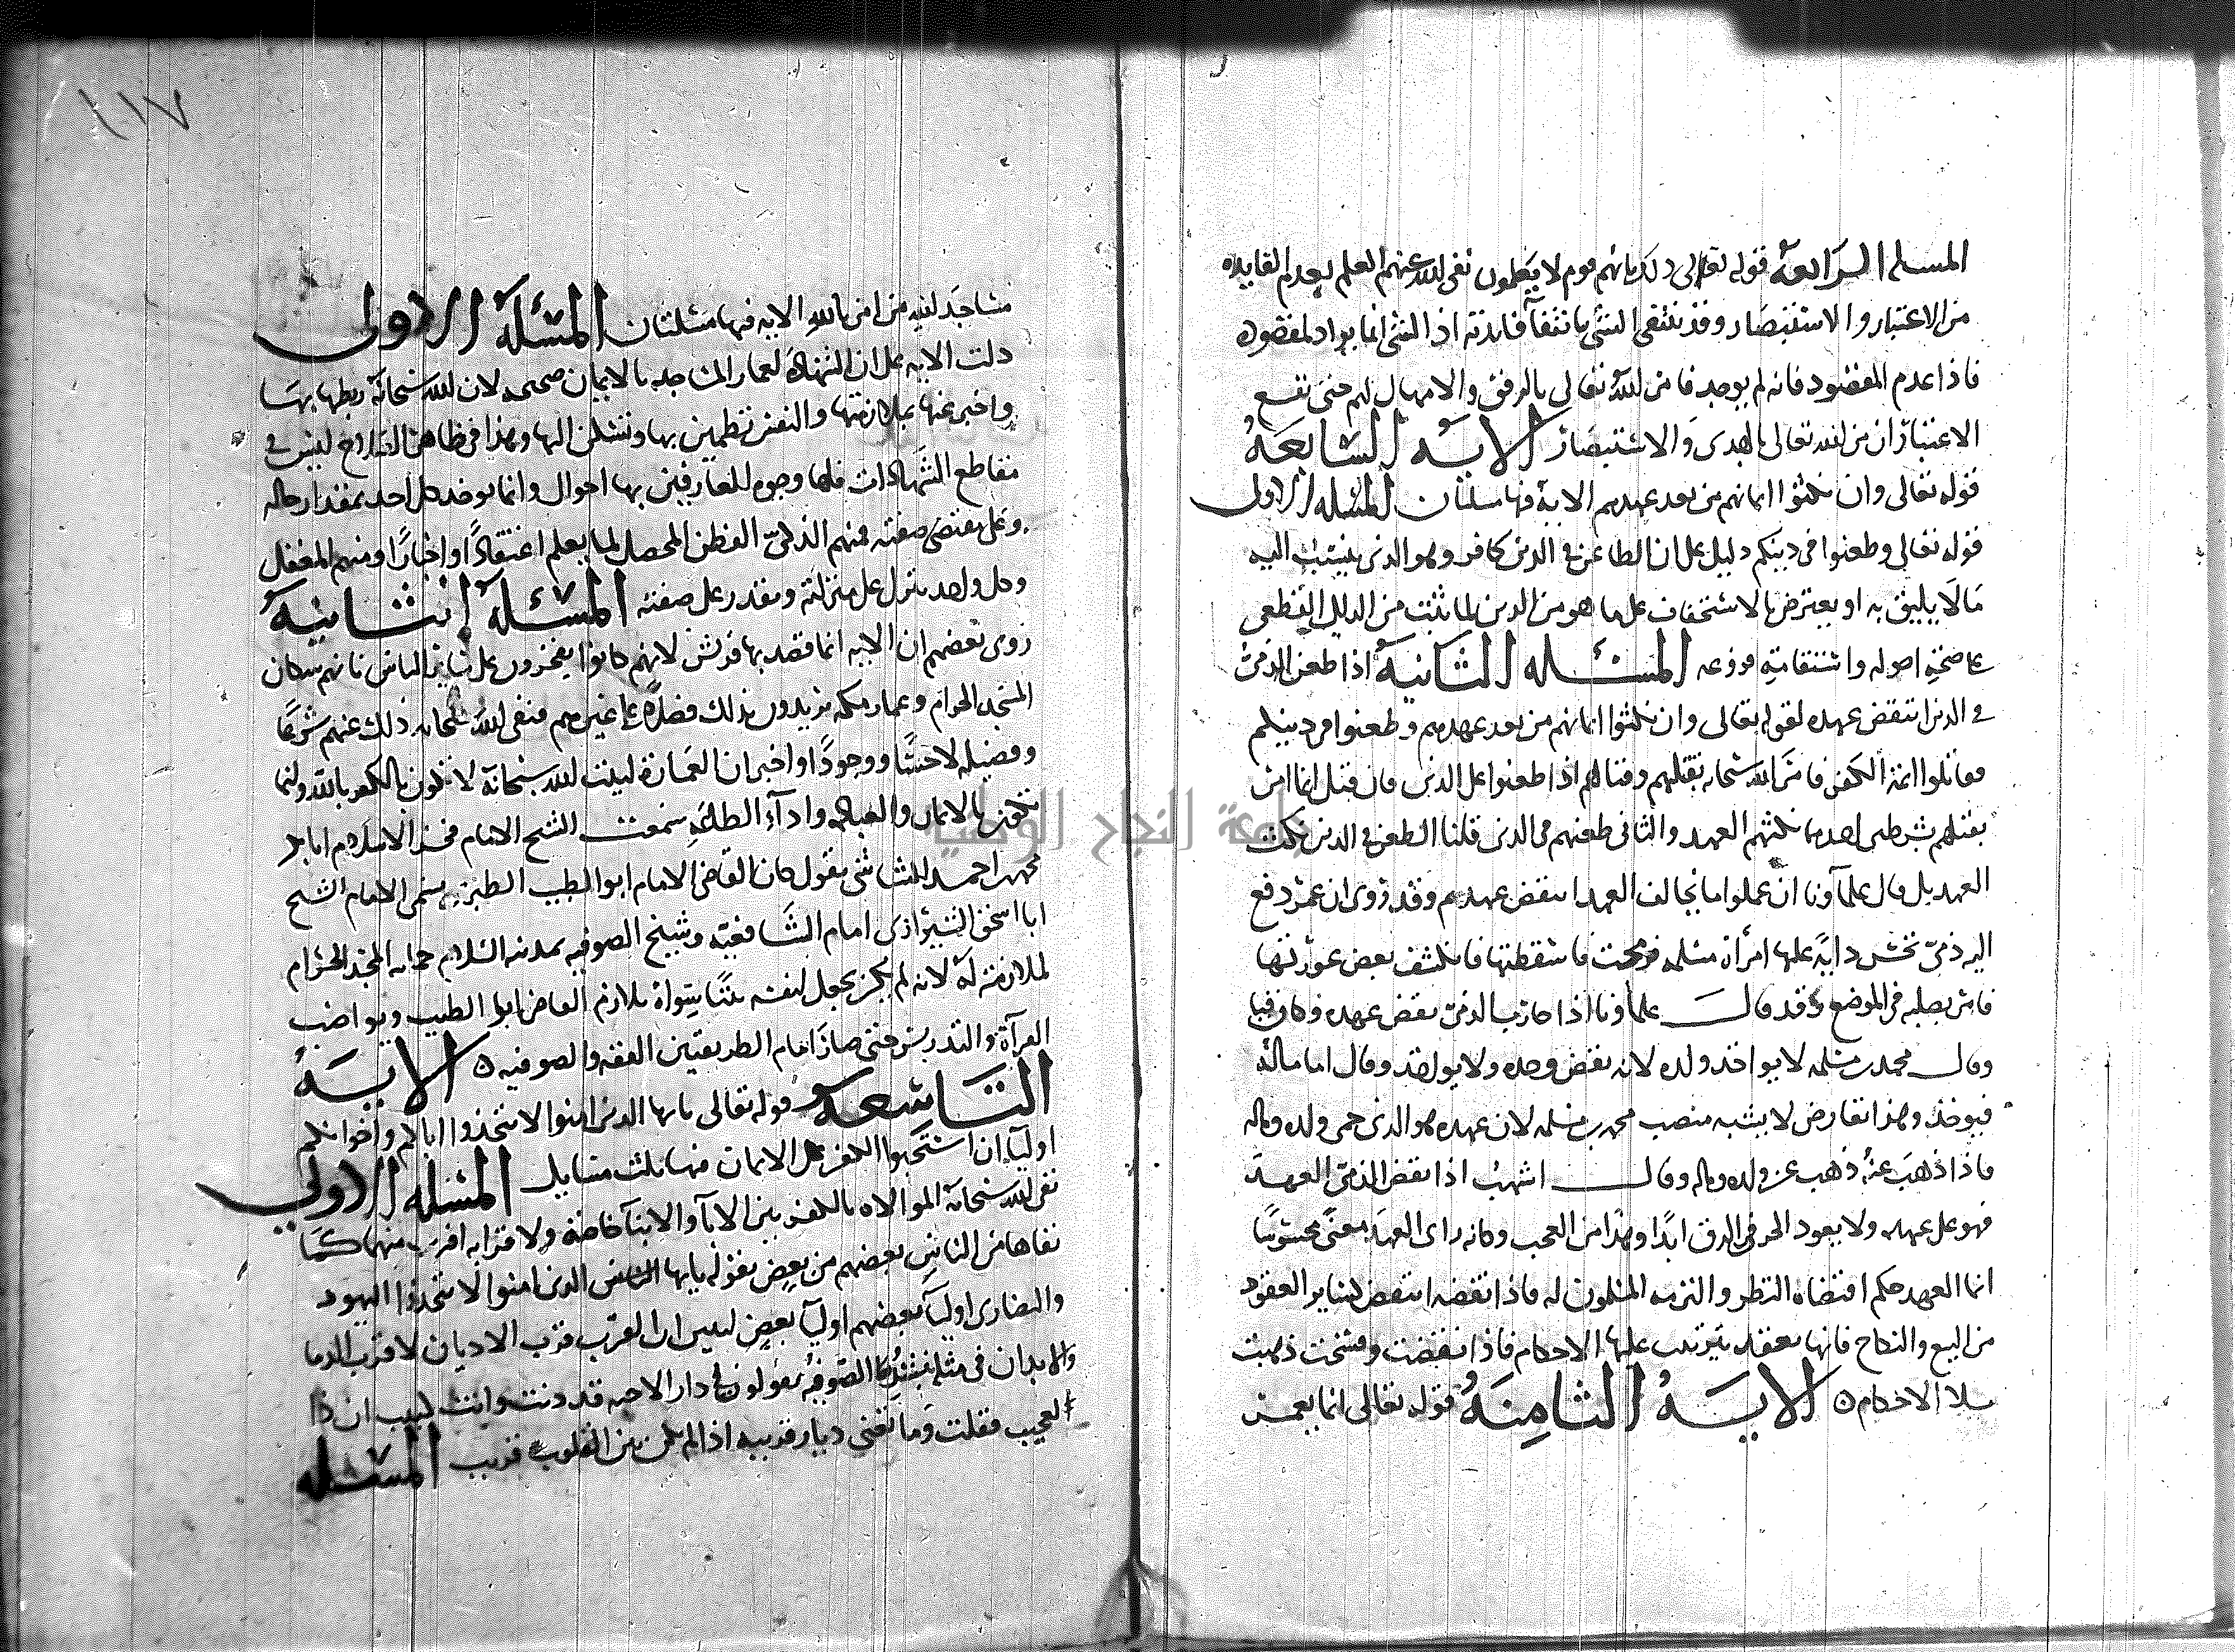 المسله الرابعة قوله تعالى ذلك بانهم قوم لا يعلمون نفى الله عنهم العلم لعدم الفايده
من الاعتبار والاستبصار وقد ينتفى الشى بانتفآ فايدته اذ الشى انما يراد لمقصوده
فاذا عدم المقصود فانه لم يوجد فامر الله تعالى بالرفق والامهال لهم حتى تقع
الاعتبار ان من الله تعالى بالهدى والاستبصار الايه السابعة
قوله تعالى وان نكثوا ايمانهم من بعد عهدهم الاية فيها مسلتان المسله الاولى
قوله تعالى وطعنوا فى دينكم دليل على ان الطاعن فى الدين كافر وهو الذى ينسب اليه
ما لا يليق به او يعترض بالاستخفاف على ما هو من الدين لما ثبت من الدليل القطعى
على صحة اصوله واستقامة فروعه المسئله الثانية اذا طعن الذمى
فى الدين انتقض عهده لقوله تعالى وان نكثوا ايمانهم من بعد عهدهم وطعنوا فى دينكم
فقاتلوا ايمة الكفر فامر الله سبحانه بقتلهم وقتالهم اذا طعنوا على الدين فان قيل انما امر
بقتلهم بشرطين احدهما نكثهم العهد والثانى طعنهم فى الدين قلنا الطعن فى الدين نكث
العهد بل قال علمآونا ان عملوا ما يخالف العهد انتقض عهدهم وقد روى ان عمر دفع
اليه ذمى نخس دابة عليها امرأة مسلمه فرمحت فاسقطتها فانكشف بعض عورتها
فامر بصلبه فى الموضع وقد قال علمآونا اذا حارب الذمى نقض عهده وكان فيا
وقال محمد بن مسلمه لا يواخذ ولده لانه نقض وحده ولا يواخذ وقال اما ماله
فيوخذ وهذا تعارض لا يشبه منصب محمد بن مسلمه لان عهده هو الذى حمى ولده وماله
فاذا ذهب عنه ذهب عن ولده وماله وقال اشهب اذا نقض الذمى العهد
فهو على عهده ولا يعود الحر فى الرق ابدا وهذا من العجب وكانه راى العهد معنى محسوسا
انما العهد حكم اقتضاه النظر والتزمه المسلمون له فاذا نقضه انتقض كساير العقود
من البيع والنكاح فانها تعقد يترتب عليها الاحكام فاذا نقضت وفسخت ذهبت
تلا الاحكام ٥ الايه الثامنة قوله تعالى انما يعمر
١١٧
مساجد لله من امن بالله الايه فيها مسئلتان المسئلة الاولى
دلت الايه على ان الشهادة لعمار المساجد بالايمان صحيحه لان الله سبحانه ربطها بها
واخبر عنها بملازمتها والنفس تطمين بها وتسكن اليها وهذا فى ظاهر الصلاح ليس فى
مقاطع الشهادات فلها وجوه للعارفين بها احوال وانما يوخذ كل احد بمقدار حاله
وعلى مقتضى صفته فمنهم الذكى الفطن المحصل لما يعلم اعتقادا واخبارا ومنهم المغفل
وكل واحد ينزل على منزلته ويقدر على صفته المسئلة الثانية
روى بعضهم ان الايه انما قصد بها قريش لانهم كانوا يفخرون على ساير الناس بانهم سكان
المسجد الحرام وعمار مكه يريدون بذلك فضلا على غيرهم فنفى الله سبحانه ذلك عنهم شرعا
وفضيله لا حسا ووجودا واخبر ان العمارة لبيت الله سبحانه لا تكون بالكفر بالله وانما
تكون بالايمان والعباده وادآء الطاعه سمعت الشيخ الامام فخر الاسلام ابا بكر
محمد احمد الشاشى يقول كان القاضى الامام ابو الطيب الطبرى يسمى الامام الشيخ
ابا اسحق الشيرازى امام الشافعيه وشيخ الصوفيه بمدينه السلام حمامه المسجد الحرام
لملازمته له لانه لم يكن يجعل لنفسه بيتا سواه يلازم القاضى ابو الطيب ويواضب
القرآة والتدريس حتى صار امام الطريقتين الفقه والصوفيه ٥ الايه
التاسعه قوله تعالى يايها الذين امنوا لا تتخذوا ابآكم واخوانكم
اوليآ ان استحبوا الكفر على الايمان فيها ثلث مسايل المسئله الاولى
نفى الله سبحانه الموالاه بالكفر بين الابآ والابنآ خاصة ولا قرابه اقرب منهما كما
نفاها من الناس بعضهم من بعض بقوله يايها الناس الذين امنوا لا تتخذوا اليهود
والنصارى اوليآ بعضهم اوليآ بعض ليبين ان القرب قرب الاديان لا قرب الدما
والابدان فى مثله تنشد الصوفيه يقولون لى دار الاحبه قد دنت وانت كييب ان ذا
لعجيب فقلت وما تغنى ديار قريبه اذا لم يكن بين القلوب قريب المسئله